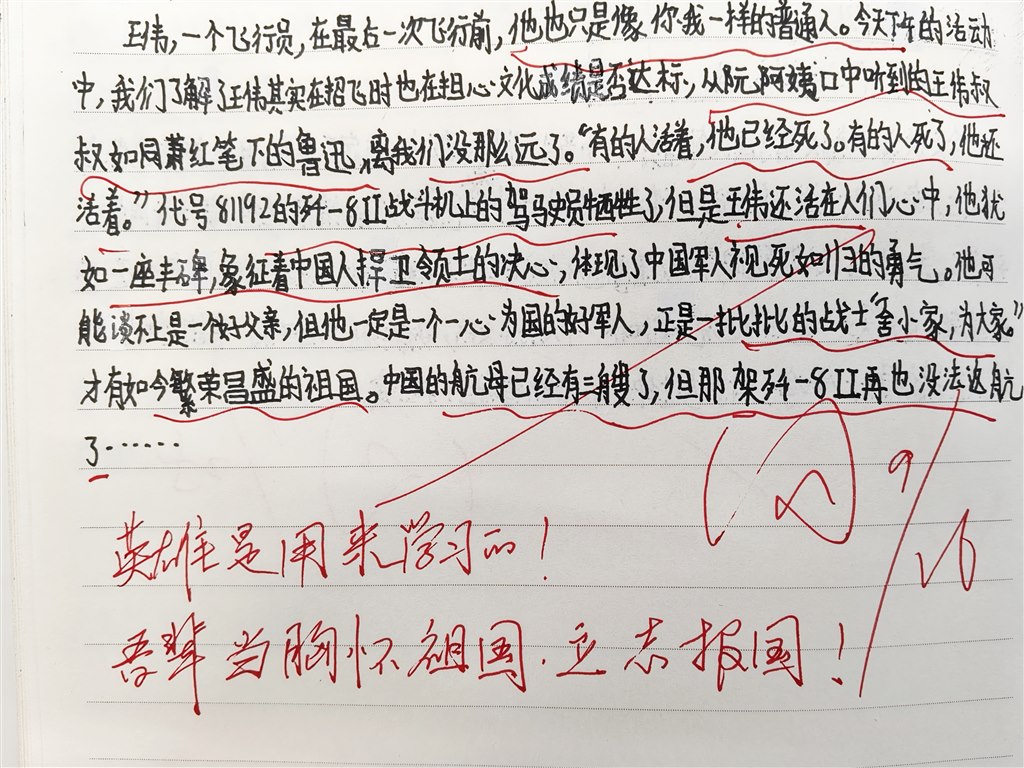 王伟，一个飞行员，在最后一次飞行前，他也只是像你我一样的普通人。今天下午的活动
中，我们了解了王伟其实在招飞时也在担心文化成绩是否达标，从阮阿姨口中听到的王伟叔
叔如同萧红笔下的鲁迅，离我们没那么远了。“有的人活着，他已经死了。有的人死了，他还
活着。”代号81192的歼-8II战斗机上的驾驶员牺牲了，但是王伟还活在人们心中，他犹
如一座丰碑，象征着中国人捍卫领土的决心，体现了中国军人视死如归的勇气。他可
能谈不上是一个好父亲，但他一定是一个一心为国的好军人，正是一批批的战士“舍小家，为大家。”
才有如今繁荣昌盛的祖国。中国的航母已经有三艘了，但那架歼-8II再也没法返航
了……
英雄是用来学习的！
吾辈当胸怀祖国．立志报国！
9/16